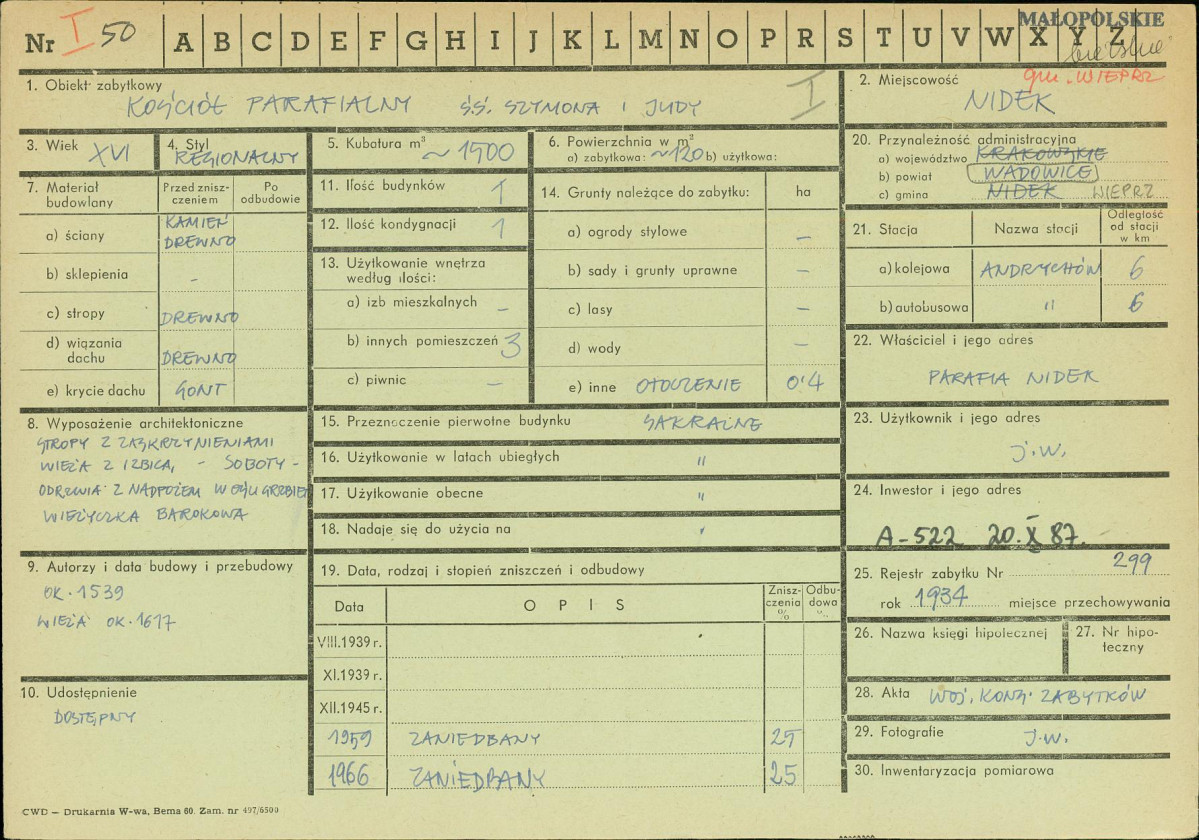 Nr I 50 A B C D E F G H I J K L M N O P R S T U V W X Y Z
MAŁOPOLSKIE
gm. WIEPRZ
1. Obiekt zabytkowy
KOŚCIÓŁ PARAFIALNY ŚŚ. SZYMONA I JUDY
I
2. Miejscowość
NIDEK
3. Wiek XVI
4. Styl
REGIONALNY
5. Kubatura m³
~ 1500
6. Powierzchnia w m²
a) zabytkowa: ~120 b) użytkowa:
20. Przynależność administracyjna
a) województwo KRAKOWSKIE
b) powiat WADOWICE
c) gmina NIDEK WIEPRZ
7. Materiał budowlany
Przed zniszczeniem
Po odbudowie
a) ściany KAMIEŃ
DREWNO
b) sklepienia -
c) stropy DREWNO
d) wiązania dachu DREWNO
e) krycie dachu GONT
11. Ilość budynków 1
12. Ilość kondygnacji 1
13. Użytkowanie wnętrza
według ilości:
a) izb mieszkalnych -
b) innych pomieszczeń 3
c) piwnic -
14. Grunty należące do zabytku: ha
a) ogrody stylowe -
b) sady i grunty uprawne -
c) lasy -
d) wody -
e) inne OTOCZENIE 0'4
21. Stacja Nazwa stacji Odległość
od stacji
w km
a) kolejowa ANDRYCHÓW 6
b) autobusowa " 6
22. Właściciel i jego adres
PARAFIA NIDEK
8. Wyposażenie architektoniczne
STROPY Z ZASKRZYNIENIAMI
WIEŻA Z IZBICĄ, - SOBOTY -
ODRZWIA Z NADPROŻEM W OŚLI GRZBIET
WIEŻYCZKA BAROKOWA
15. Przeznaczenie pierwotne budynku SAKRALNE
16. Użytkowanie w latach ubiegłych "
17. Użytkowanie obecne "
18. Nadaje się do użycia na "
23. Użytkownik i jego adres
J.W.
24. Inwestor i jego adres
A-522 20.X 87.
9. Autorzy i data budowy i przebudowy
OK. 1539
WIEŻA OK. 1617
19. Data, rodzaj i stopień zniszczeń i odbudowy
Data OPIS Zniszczenia % Odbudowa %
VIII.1939 r.
XI.1939 r.
XII.1945 r.
1959 ZANIEDBANY 25
1966 ZANIEDBANY 25
25. Rejestr zabytku Nr 299
rok 1934 miejsce przechowywania
26. Nazwa księgi hipotecznej
27. Nr hipoteczny
10. Udostępnienie
DOSTĘPNY
28. Akta WOJ. KONS. ZABYTKÓW
29. Fotografie J.W.
30. Inwentaryzacja pomiarowa
CWD — Drukarnia W-wa, Bema 60. Zam. nr 497/6500